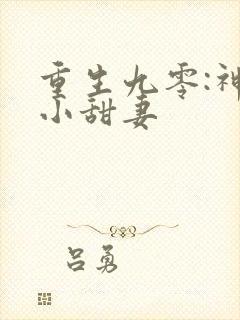 重生九零:神
小甜妻
吕勇